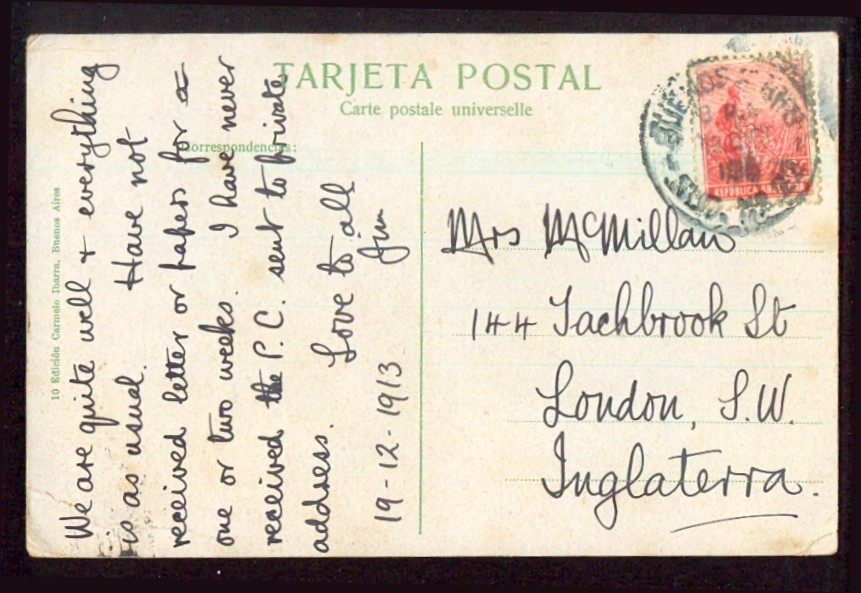 TARJETA POSTAL
Carte postale universelle
Correspondencias:
10 Edición Carmelo Ibarra, Buenos Aires
We are quite well + everything
is as usual. Have not
received letter or papers for a
one or two weeks. I have never
received the P.C. sent to private
address. Love to all
Jim
19-12-1913
Mrs McMillan
144 Tachbrook St
London, S.W.
Inglaterra.
BUENOS
REPUBLICA